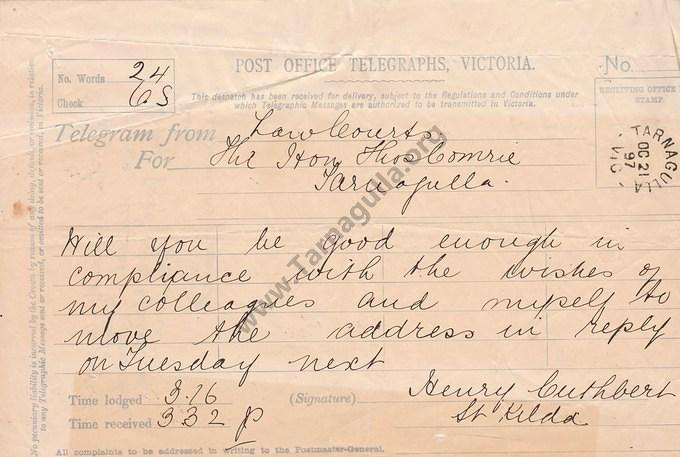 POST OFFICE TELEGRAPHS, VICTORIA.
No.
No. Words 24
Check 6.S
This despatch has been received for delivery, subject to the Regulations and Conditions under
which Telegraphic Messages are authorized to be transmitted in Victoria.
RECEIVING OFFICE
STAMP.
TARNAGULLA
OC 21
97
VIC
Telegram from Law Courts
For The Hon Thos Comrie
Tarnagulla.
Will you be good enough in
compliance with the wishes of
my colleagues and myself to
move the address in reply
on Tuesday next
Time lodged 3.16
(Signature) Henry Cuthbert
Time received 3 32 p
St Kilda
All complaints to be addressed in writing to the Postmaster-General.
No pecuniary liability is incurred by the Crown by reason of any delay, default, or omission, in relation
to any Telegraphic Message sent or received, or omitted to be sent or received, in Victoria.
www.Tarnagulla.org